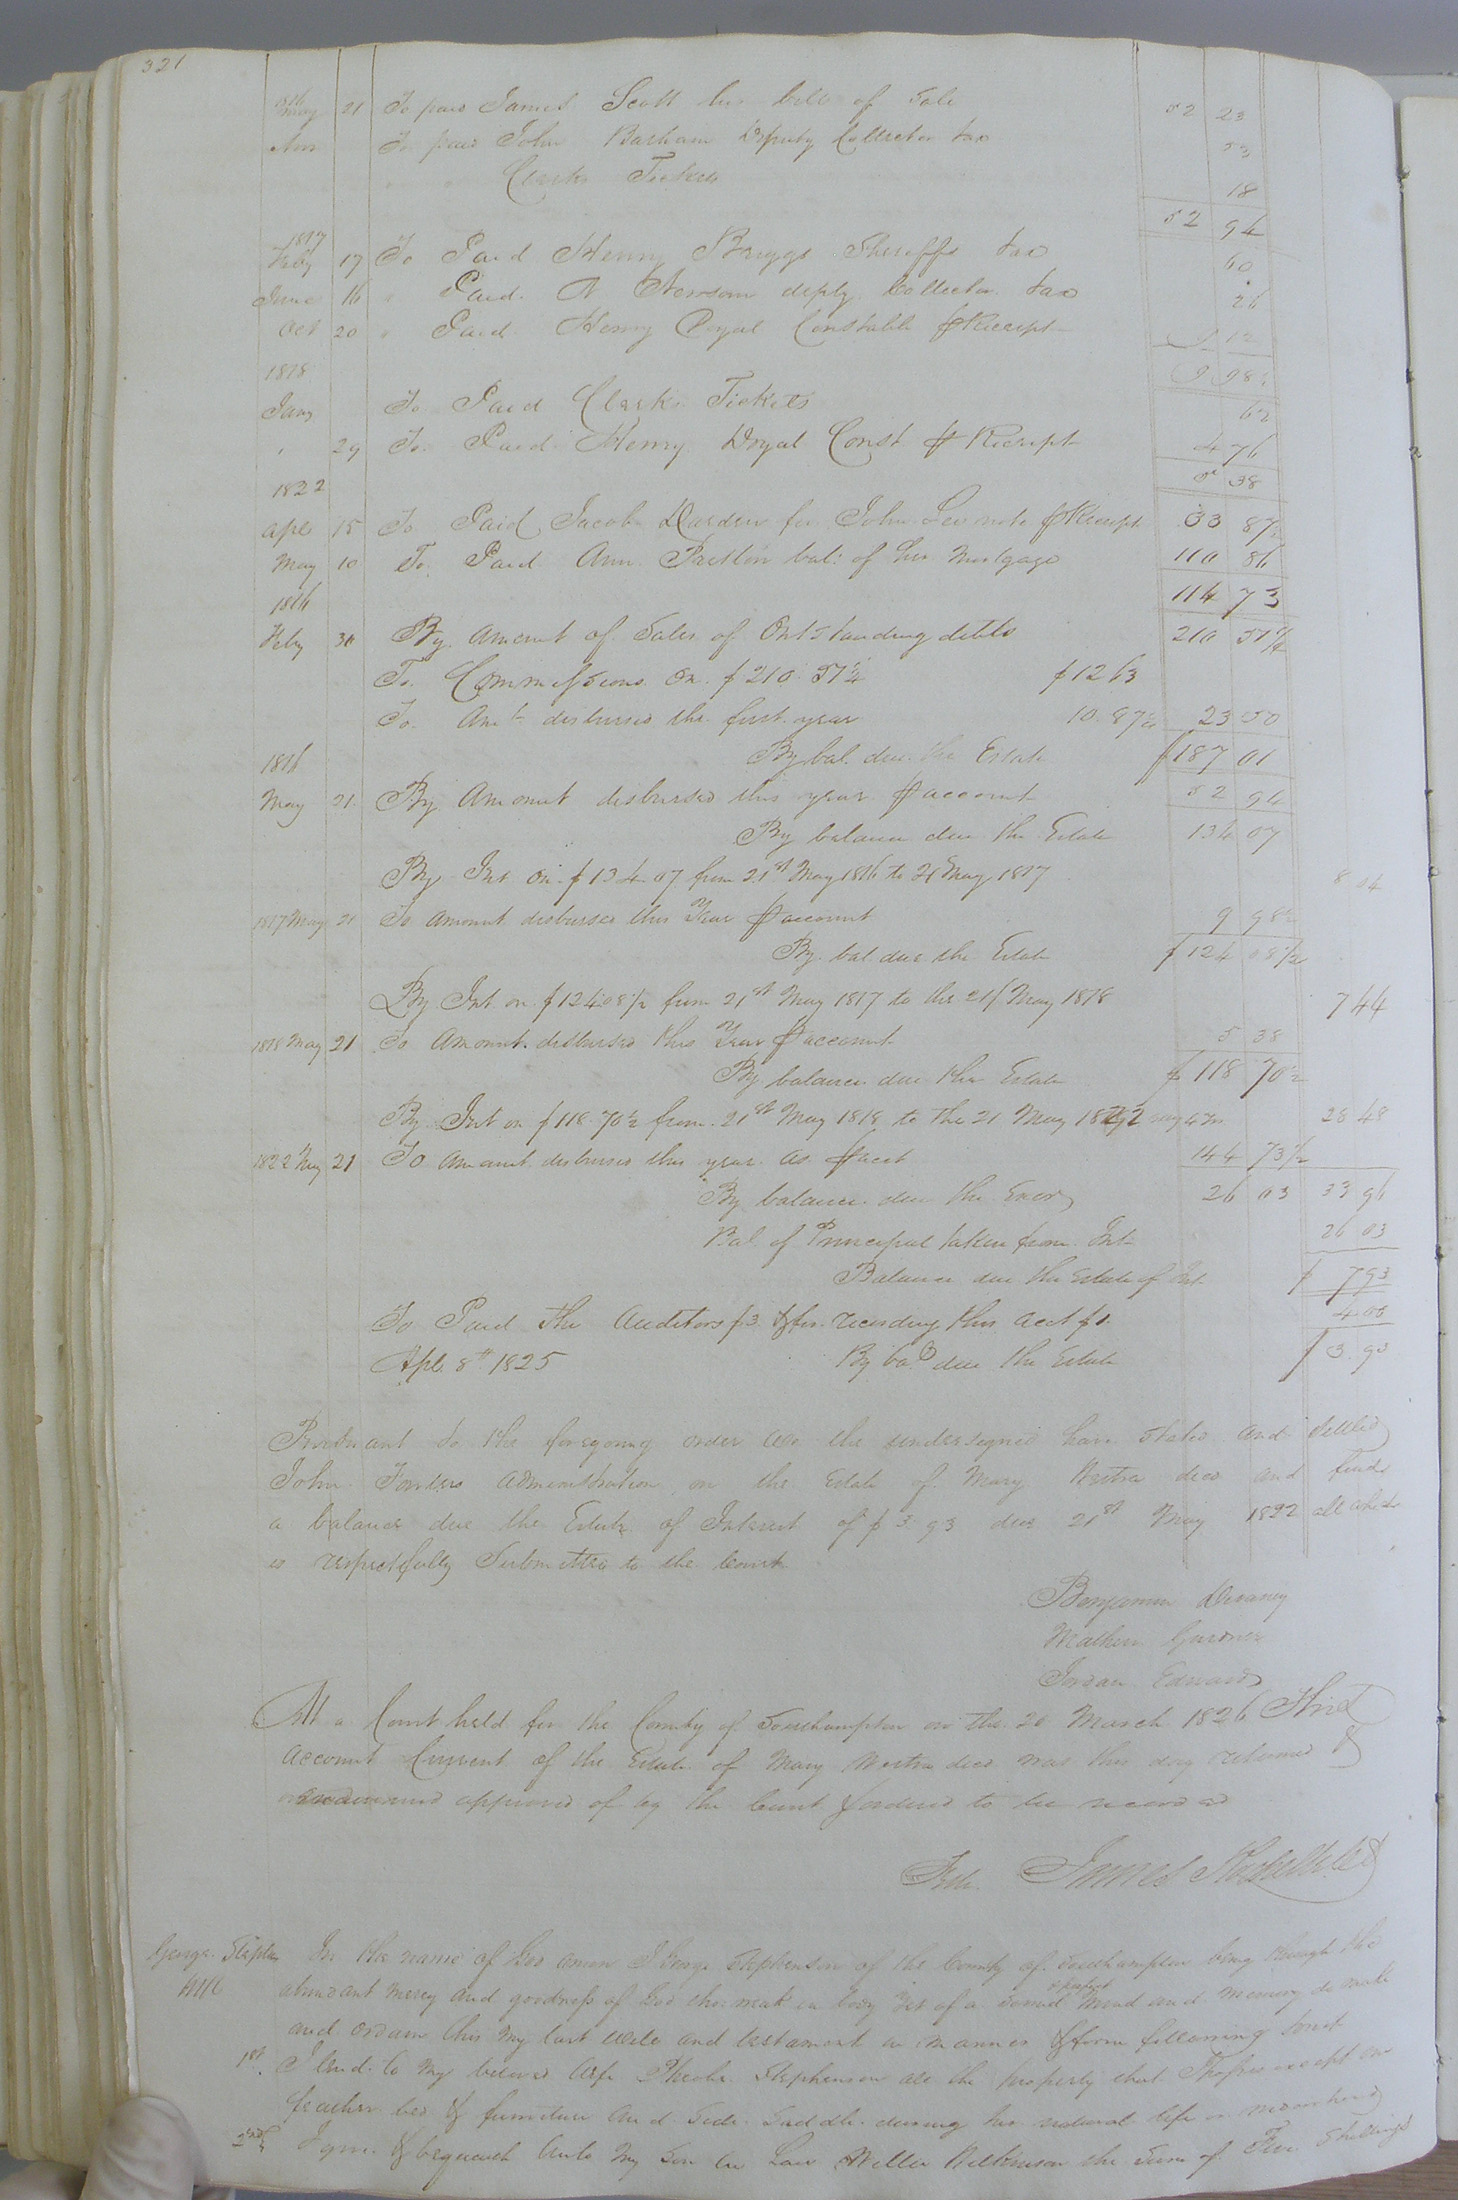 321
May 21 To paid James Scott his bill of Sale 52 23
To paid John Barham Deputy Collector tax 53
" " Clerks Tickets 18
52 94
1817
Feby 17 To Paid Henry Briggs Sheriffs tax 60
June 16 " Paid N Newsom deply Collector tax 26
Oct 20 " Paid Henry Doyal Constable Receipt 9 12
1818 9 98½
Jany To Paid Clerks Tickets 62
" 29 To Paid Henry Doyal Const Receipt 4 76
1822 5 38
Apl 15 To Paid Jacob Darden for John note Receipt 33 87½
May 10 To Paid Ann Pretlow bal: of her Mortgage 110 86
1816 114 73
Feby 30 By amount of Sales of Outstanding debts 210 51¼
To Commissions on $210.51¼ $12 63
To Amt disbursed the first year 10.87¼ 23 50
1816 By bal. due the Estate $187 01
May 21 By Amount disbursed this year account 52 94
By balance due the Estate 134 07
By Int on $134.07 from 21st May 1816 to 21 May 1817 8 04
1817 May 21 To amount disbursed this Year account 9 98½
By bal due the Estate $124 08½
By Int on $124.08½ from 21st May 1817 to the 21st May 1818 7 44
1818 May 21 To Amount disbursed this Year account 5 38
By balance due the Estate $118 70½
By Int on $118.70½ from 21st May 1818 to the 21 May 1822 28 48
1822 May 21 To amount disbursed this year as acct 144 73½
By balance due the Exor 26 03 33 96
Bal. of Principal taken from Int 26 03
Balance due the Estate of Int. $ 7 93
To Paid the Auditors $3 & for recording this acct $1. 4 00
Apl. 8th 1825 By bal due the Estate $ 3 93
Pursuant to the foregoing order we the undersigned have stated and settled
John administration on the Estate of Mary decd and find
a balance due the Estate of Interest of $3.93 due 21st May 1822 all which
is respectfully Submitted to the Court
Benjamin Devaney
Mathew Gardner
Jordan Edwards
At a Court held for the County of Southampton on the 20 March 1826 This
Account Current of the Estate of Mary decd was this day returned &
approved of by the Court & ordered to be recorded
James Rochelle
George Stephen In the name of God amen I George Stephenson of the County of Southampton being through the
Will abundant Mercy and goodness of God tho weak in body yet of a sound & perfect Mind and Memory do make
and ordain this my last Will and testament in manner & form following to wit
1st I lend to my beloved wife Phoebe Stephenson all the property that I possess except one
feather bed & furniture and Side Saddle during her natural life or widowhood
2nd I give & bequeath unto my Son in Law Willie Wilkinson the Sum of Five Shillings